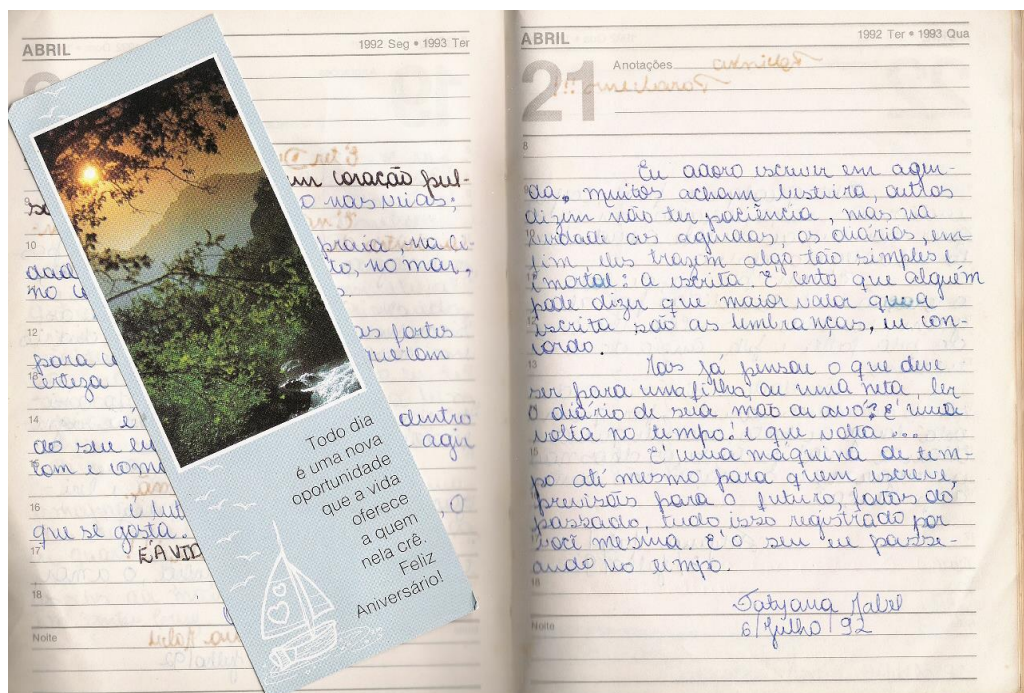 ABRIL
1992 Seg • 1993 Ter
um coração pul-
o nas veias;
10
praia, na ci-
dad
to, no mar,
no c
12
as fortes
para
que com
13
certeza
14
é
dentro
do seu eu
agir
com e como
16
é lut
, o
que se gosta.
17
É A VID
18
Noite
Todo dia
é uma nova
oportunidade
que a vida
oferece
a quem
nela crê.
Feliz
Aniversário!
ABRIL
1992 Ter • 1993 Qua
21
Anotações
8
Eu adoro escrever em agen-
da, muitos acham besteira, outros
dizem não ter paciência, mas na
verdade as agendas, os diários, en-
fim eles trazem algo tão simples e
imortal: a escrita. E certo que alguém
pode dizer que maior valor que a
12
escrita são as lembranças, eu con-
cordo.
13
Mas já pensou o que deve
ser para uma filha ou uma neta, ler
o diário de sua mãe ou avó? É uma
volta no tempo! e que volta...
15
É uma máquina de tem-
po até mesmo para quem escreve,
previsões para o futuro, fatos do
passado, tudo isso registrado por
você mesma. É o seu eu passe-
ando no tempo.
18
Tatyana Jabel
Noite
6/Julho/92